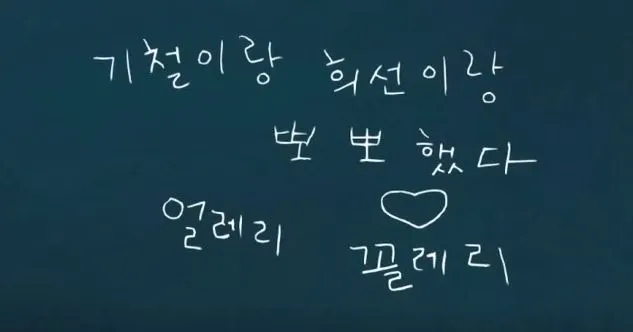 기철이랑 희선이랑
뽀뽀했다
얼레리 ♡ 꼴레리